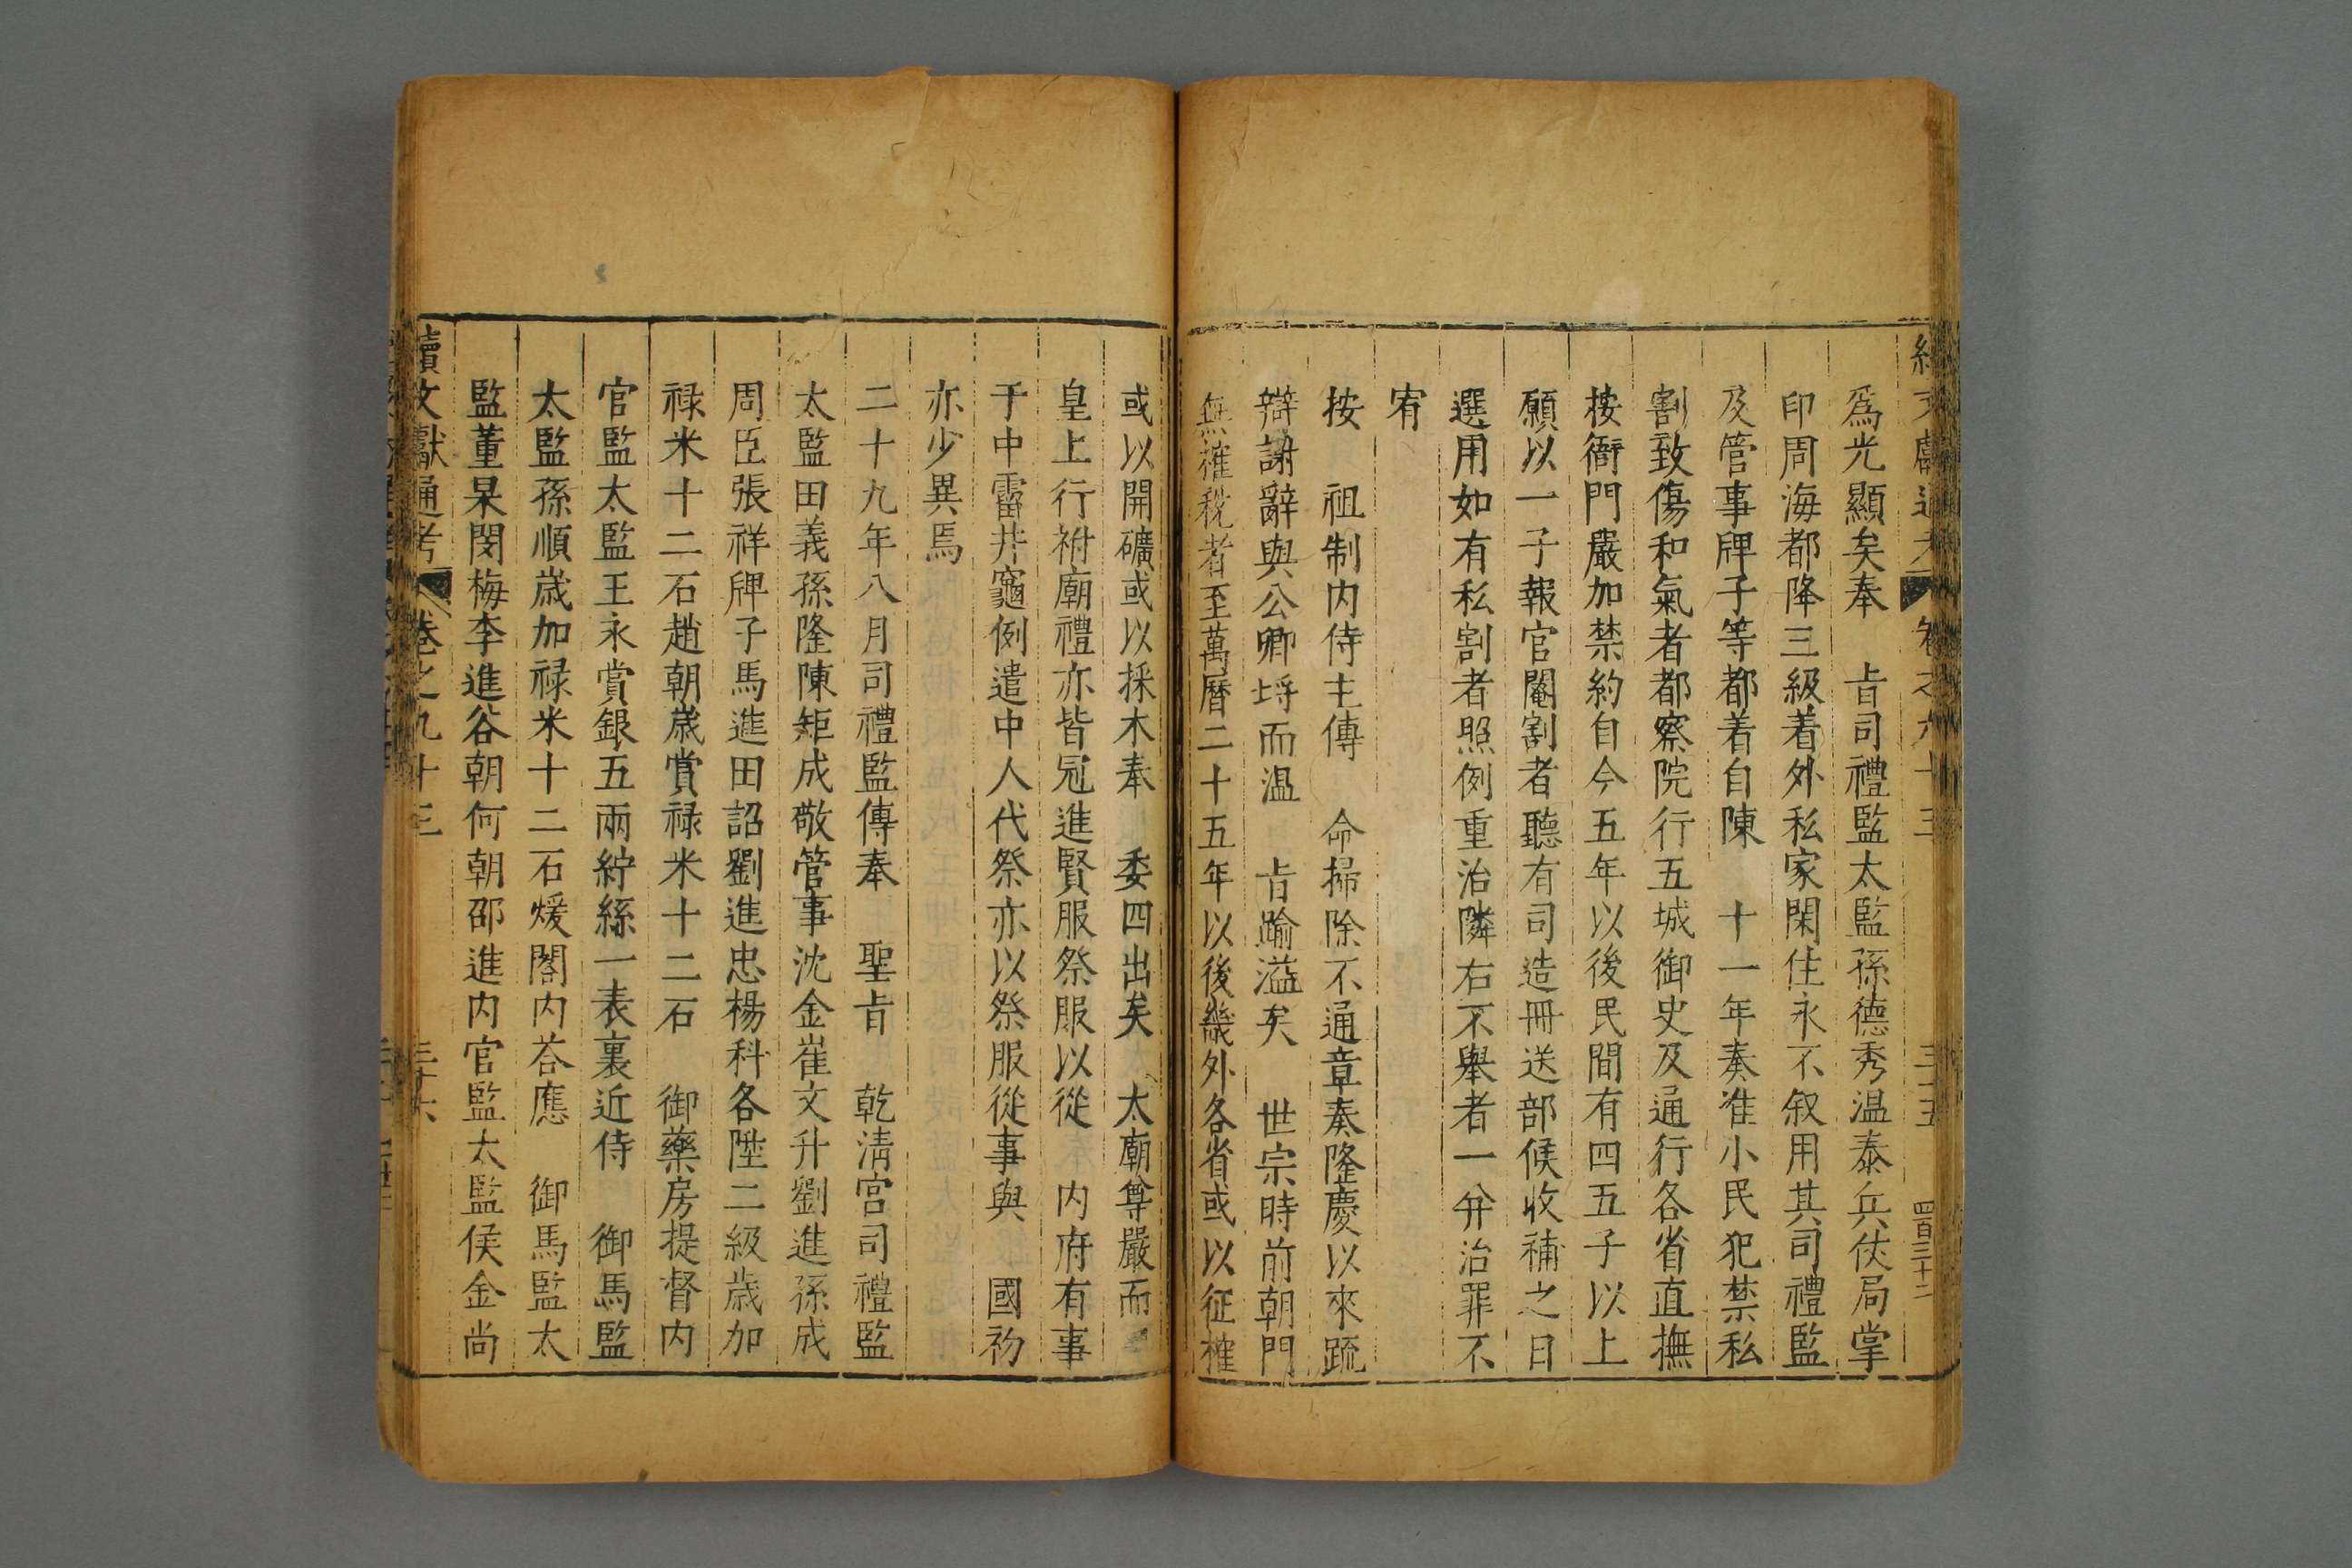 爲光顯矣奉　旨司禮監太監孫德秀温泰兵仗局掌
印周海都降三級着外私家閑住永不叙用其司禮監
及管事牌子等都着自陳　十一年奏准小民犯禁私
割致傷和氣者都察院行五城御史及通行各省直撫
按衙門嚴加禁約自今五年以後民間有四五子以上
願以一子報官閹割者聽有司造冊送部候收補之日
選用如有私割者照例重治隣右不舉者一并治罪不
宥
按　祖制内侍主傳　命掃除不通章奏隆慶以來疏
辯謝辭與公卿埒而温　旨踰溢矣　世宗時前朝門
無榷稅者至萬曆二十五年以後畿外各省或以征榷
或以開礦或以採木奉　委四出矣　太廟尊嚴而
皇上行祔廟禮亦皆冠進賢服祭服以從　内府有事
于中霤井竈例遣中人代祭亦以祭服從事與　國初
亦少異焉
二十九年八月司禮監傳奉　聖旨　乾淸宮司禮監
太監田義孫隆陳矩成敬管事沈金崔文升劉進孫成
周臣張祥牌子馬進田詔劉進忠楊科各陞二級歲加
祿米十二石趙朝歲賞祿米十二石　御藥房提督内
官監太監王永賞銀五兩紵絲一表裏近侍　御馬監
太監孫順歲加祿米十二石煖閣内荅應　御馬監太
監董杲閔梅李進谷朝何朝邵進内官監太監侯金尚
續文獻通考　卷之九十三　三十六